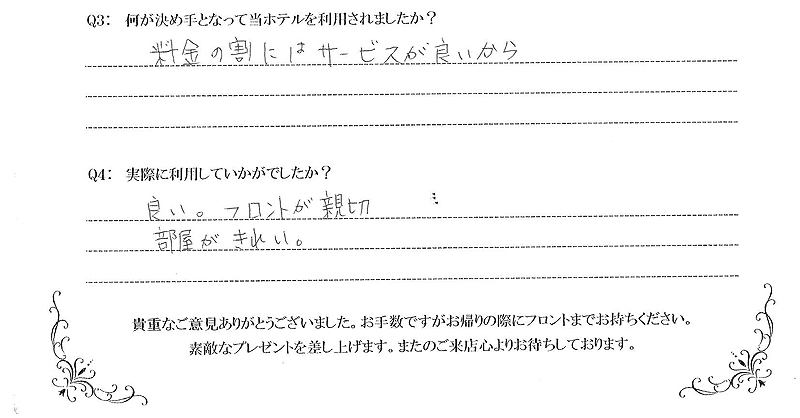 Q3： 何が決め手となって当ホテルを利用されましたか？
料金の割にはサービスが良いから
Q4： 実際に利用していかがでしたか？
良い。フロントが親切
部屋がきれい。
貴重なご意見ありがとうございました。お手数ですがお帰りの際にフロントまでお持ちください。
素敵なプレゼントを差し上げます。またのご来店心よりお待ちしております。